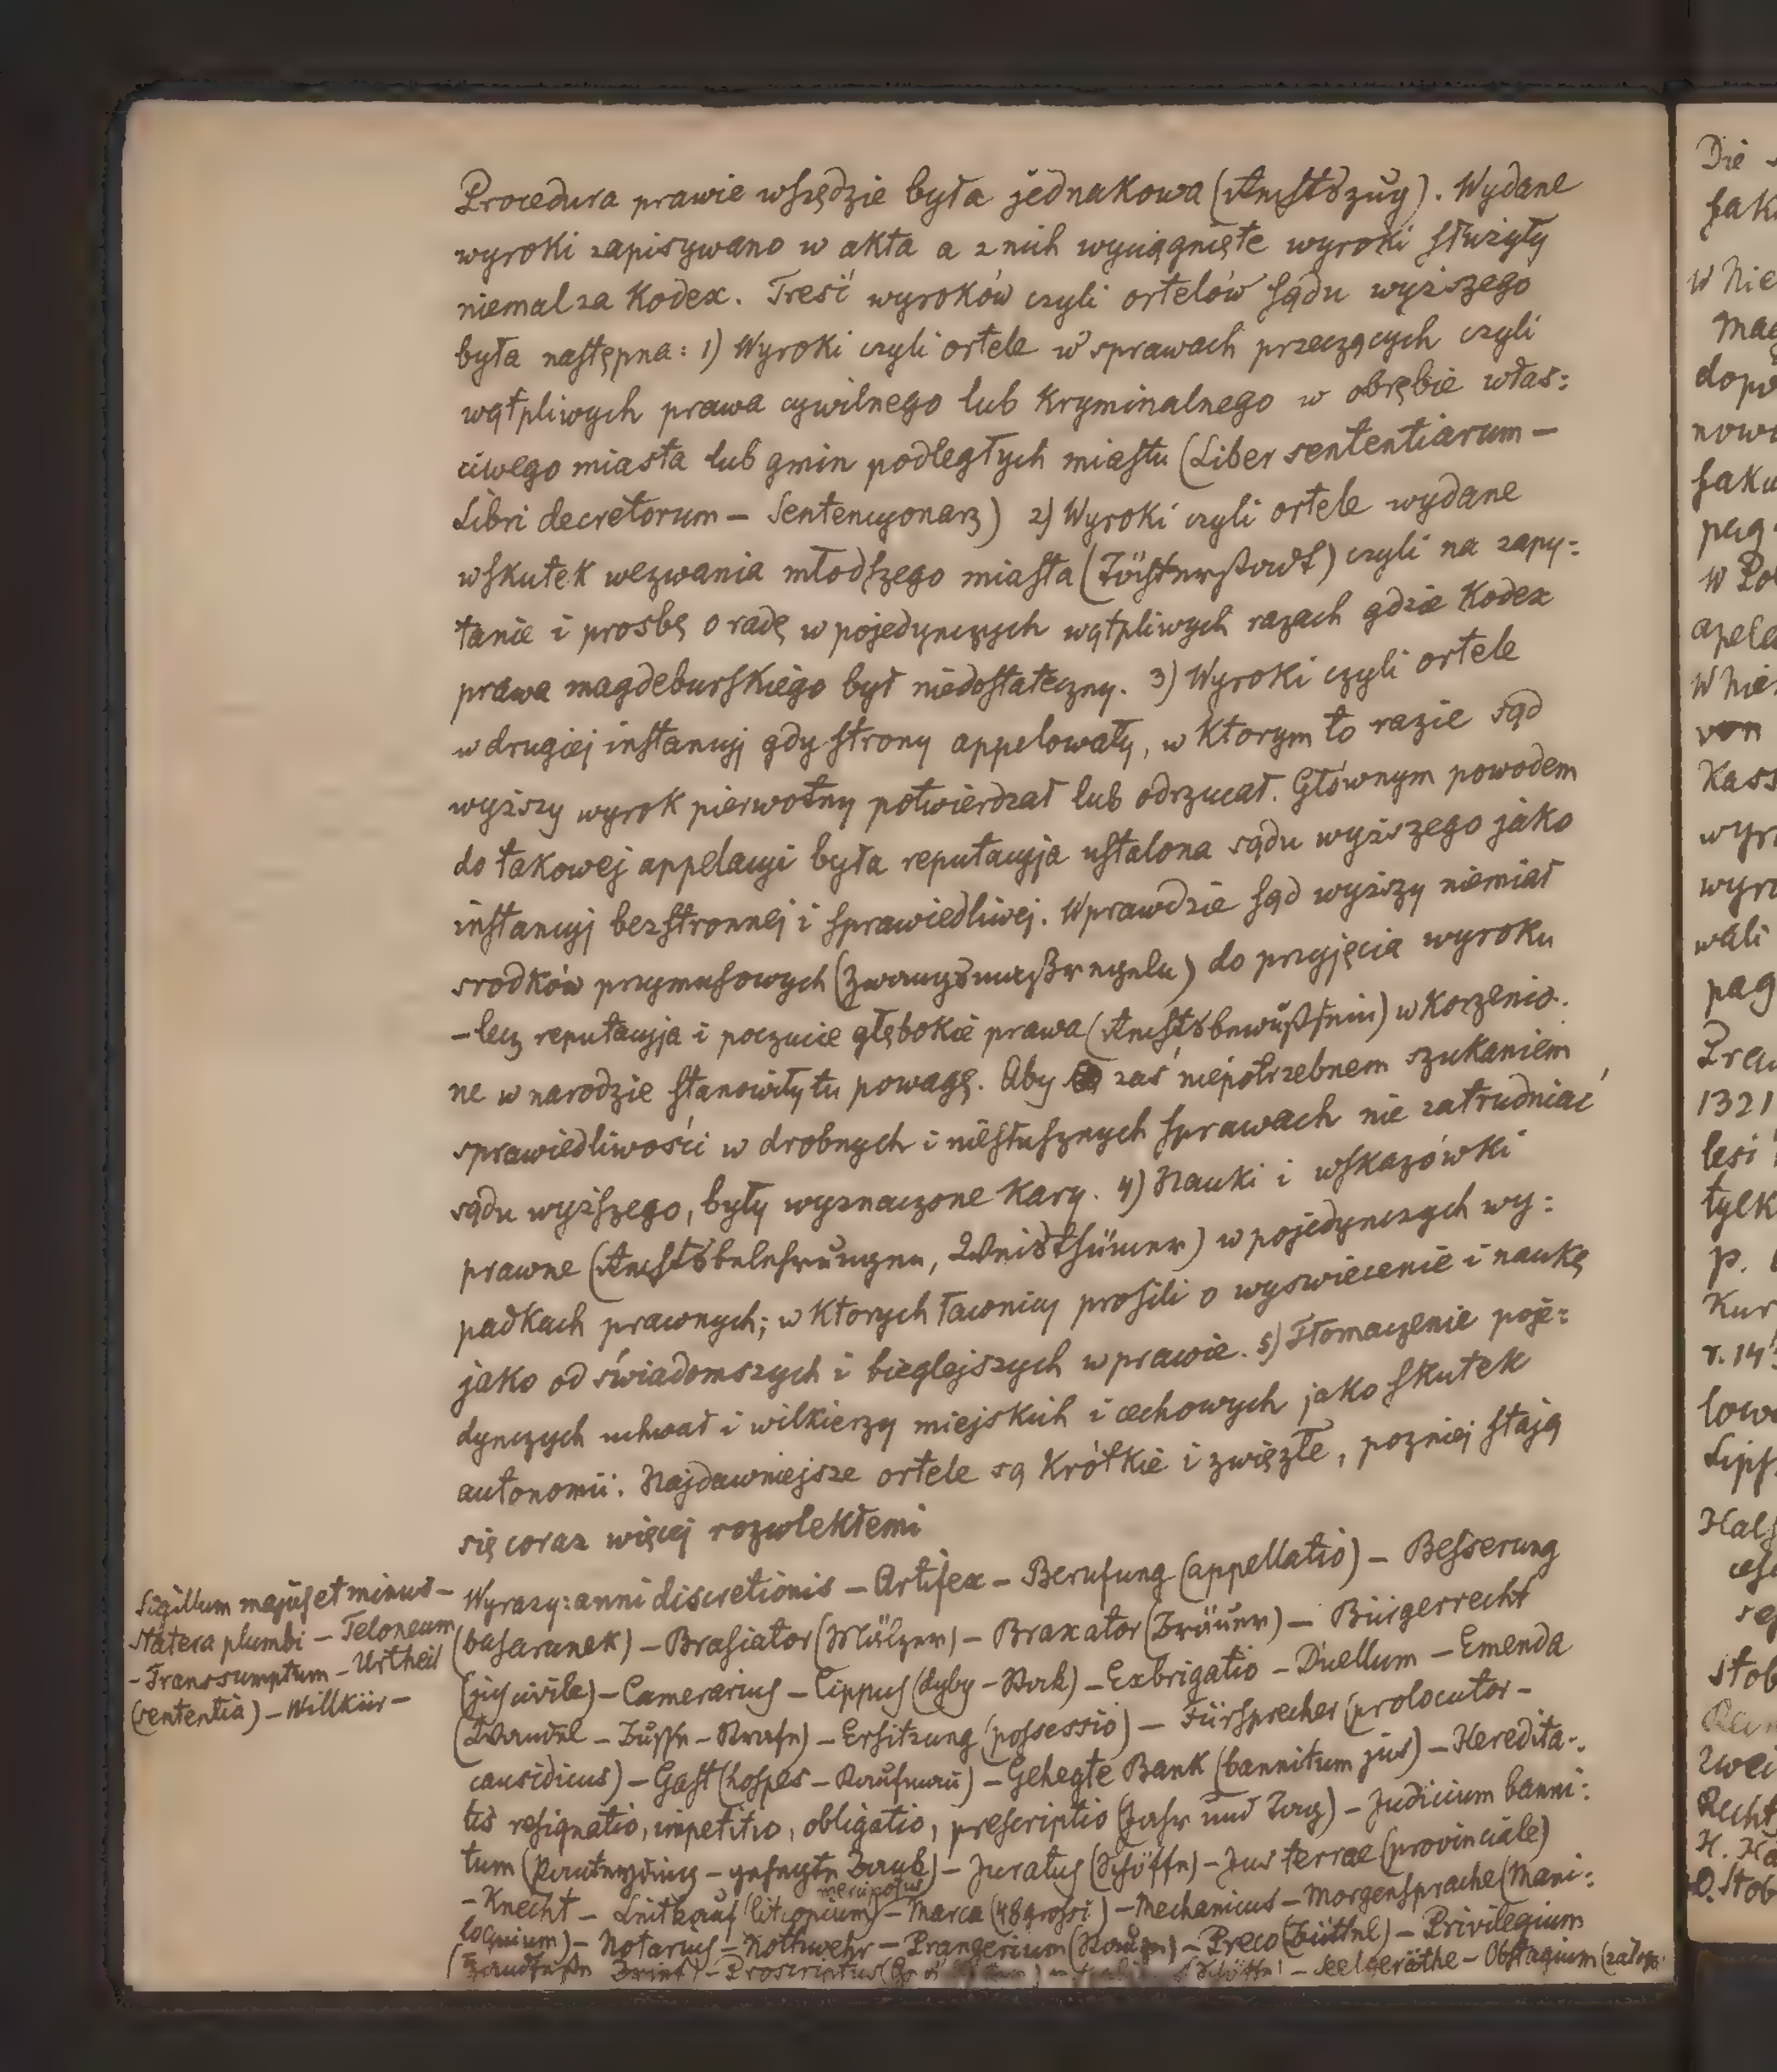 Procedura prawie wszędzie była jednakowa (Rechtszug). Wydane
wyroki zapisywano w akta a z nich wyciągnięte wyroki służyły
niemal za Kodex. Treść wyroków czyli ortelów sądu wyższego
była następna: 1) Wyroki czyli ortele w sprawach przeczących czyli
wątpliwych prawa cywilnego lub Kryminalnego w obrębie włas:
ciwego miasta lub gmin podległych miastu (Liber sententiarum –
Libri decretorum – Sentencyonarz) 2) Wyroki czyli ortele wydane
wskutek wezwania młodszego miasta (Tochterstadt) czyli na zapy:
tanie i prosbę o radę w pojedynczych wątpliwych razach gdzie Kodex
prawa magdeburskiego był niedostateczny. 3) Wyroki czyli ortele
w drugiej instancyj gdy strony appelowały, w Ktorym to razie sąd
wyższy wyrok pierwotny potwierdzał lub odrzucał. Głównym powodem
do takowej appelacyi była reputacyja ustalona sądu wyższego jako
instancyj bezstronnej i sprawiedliwej. Wprawdzie sąd wyższy niemiał
srodków przymusowych (Zwangsmaßregeln) do przyjęcia wyroku
– lecz reputacyja i poczucie głębokie prawa (Rechtsbewußtsein) w Korzenio:
ne w narodzie stanowiły tu powagę. Aby zaś niepotrzebnem szukaniem
sprawiedliwości w drobnych i niesłusznych sprawach nie zatrudniać
sądu wyższego, były wyznaczone Kary. 4) Nauki i wskazówki
prawne (Rechtsbelehrungen, Weisthümer) w pojedynczych wy:
padkach prawnych; w Ktorych ławnicy prosili o wyswiecenie i naukę
jako od świadomszych i bieglejszych w prawie. 5) Tłomaczenie poje:
dynczych uchwał i wilkierzy miejskich i cechowych jako skutek
autonomii. Najdawniejsze ortele są Krótkie i zwięzłe, pozniej stają
się coraz więcej rozwlekłemi
Wyrazy: anni discretionis – Artifex – Berufung (appellatio) – Besserung
(basarunek) – Brasiator (Mälzer) – Braxator (Bräuer) – Bürgerrecht
(jus civile) – Camerarius – Cippus (dyby – Stock) – Exbrigatio – Duellum – Emenda
(Wandel – Buße – Strafe) – Ersitzung (possessio) – Fürsprecher (prolocutor –
causidicus) – Gast (hospes – Kaufmann) – Gehegte Bank (bannitum jus) – Heredita:
tis resignatio, impetitio, obligatio, prescriptio (Jahr und Tag) – Judicium banni:
tum (Burgding – gehegte Bank) – Juratus (Schöffe) – Jus terrae (provinciale)
– Knecht – Leitkauf (litcopium mercipotus) – Marca (48 grossi) – Mechanicus – Morgensprache (Mani:
loquium) – Notarius – Nothwehr – Prangerium – Preco (Büttel) – Privilegium
(Handfeste Brief) – Proscriptus – Seelgeräthe – Obstagium (załoga
Sigillum majus et minus –
statera plumbi – Teloneum
– Transsumptum – Urtheil
(sententia) – Willkür –
Die
W Nie
dopo
nowi
W Pol
W Nie
von
Kass
wyr
wyro
wali
pag
1321
tylk
p.
Kur
Stob
zwei
Recht
O. Stob